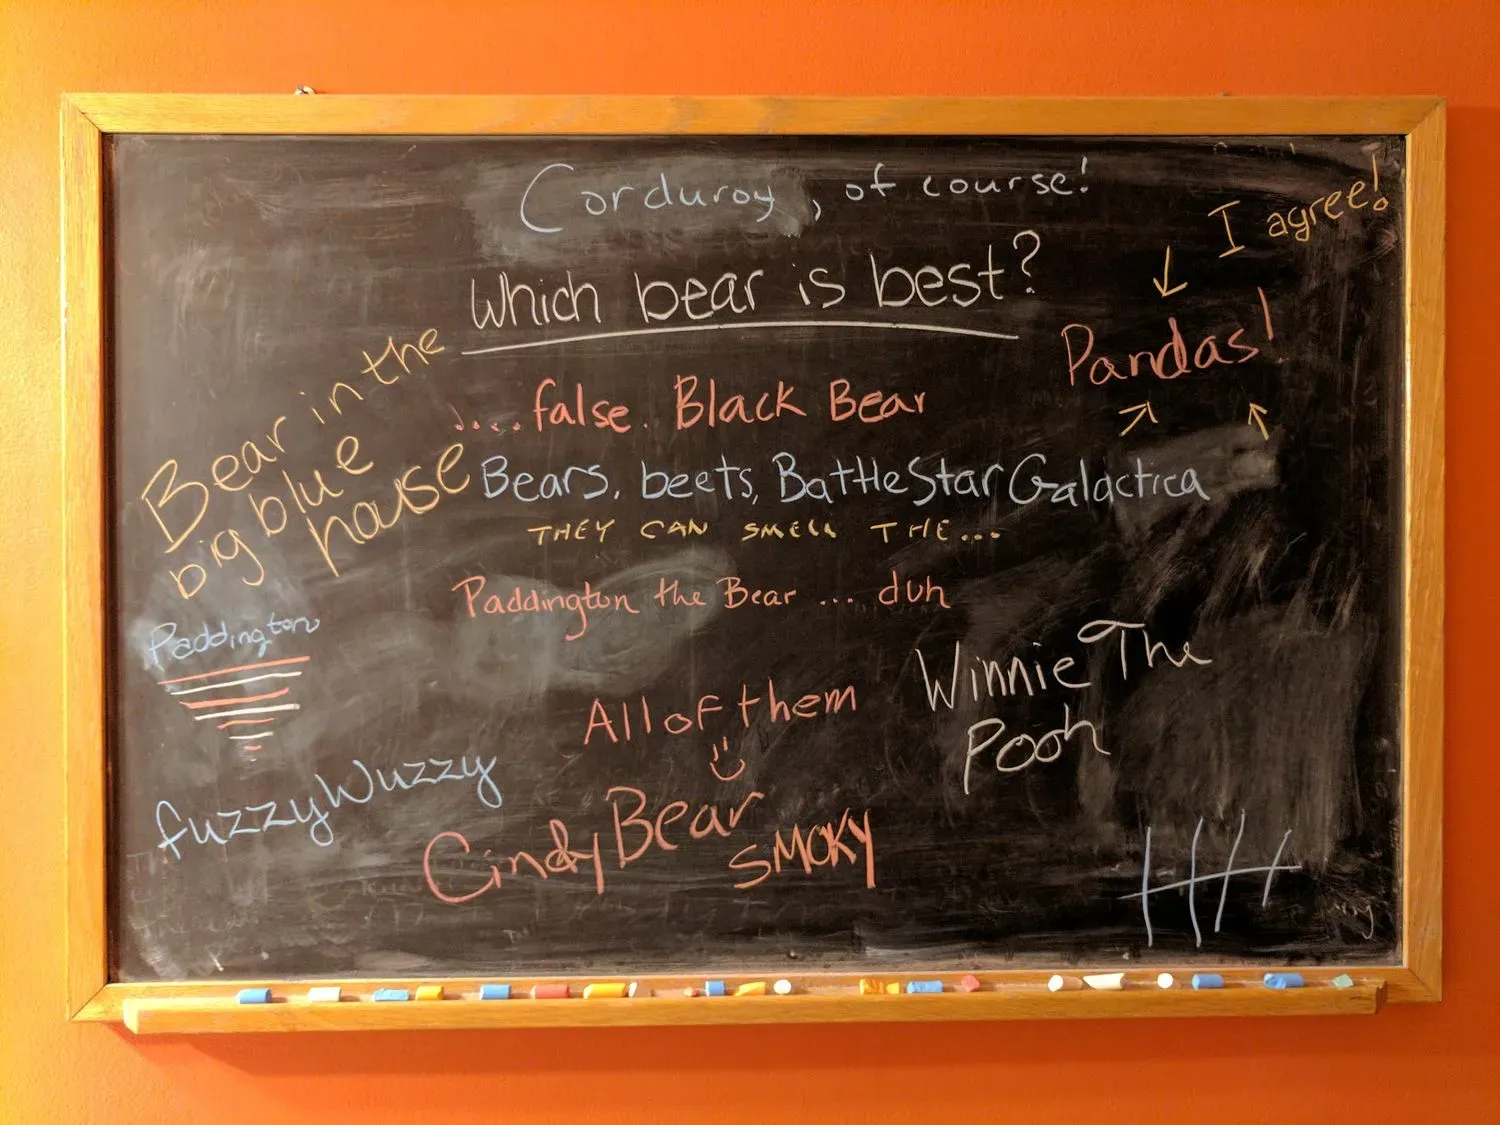 Corduroy, of course!
I agree!
Which bear is best?
Pandas!
Bear in the
big blue
house
....false. Black Bear
Bears, beets, Battlestar Galactica
THEY CAN SMELL THE...
Paddington the Bear ... duh
Paddington
Winnie The
Pooh
All of them
fuzzy Wuzzy
Cindy Bear
SMOKY